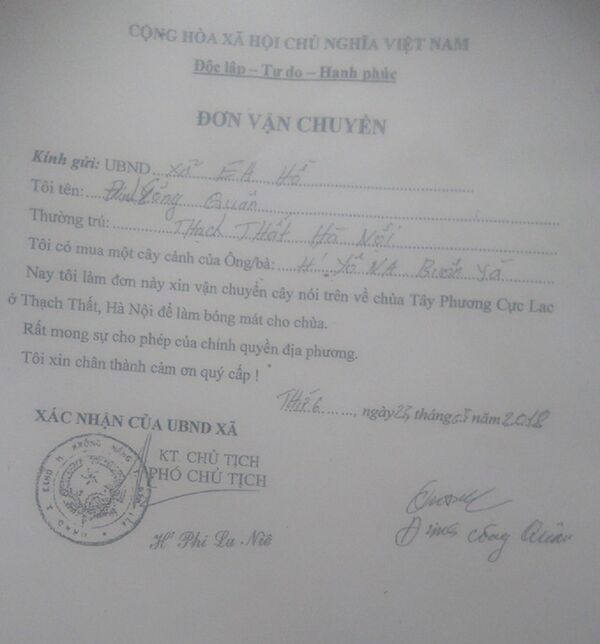 CỘNG HÒA XÃ HỘI CHỦ NGHĨA VIỆT NAM
Độc lập – Tự do – Hạnh phúc
ĐƠN VẬN CHUYỂN
Kính gửi: UBND xã EA Hồ
Tôi tên: Đinh Công Quân
Thường trú: Thạch Thất Hà Nội
Tôi có mua một cây cảnh của Ông/bà: H' Yô NA Buôn
Nay tôi làm đơn này xin vận chuyển cây nói trên về chùa Tây Phương Cực Lac
ở Thạch Thất, Hà Nội để làm bóng mát cho chùa.
Rất mong sự cho phép của chính quyền địa phương.
Tôi xin chân thành cảm ơn quý cấp !
Thứ 6, ngày 23 tháng 03 năm 2018
XÁC NHẬN CỦA UBND XÃ
KT. CHỦ TỊCH
PHÓ CHỦ TỊCH
H' Phi La Niê
Đinh Công Quân